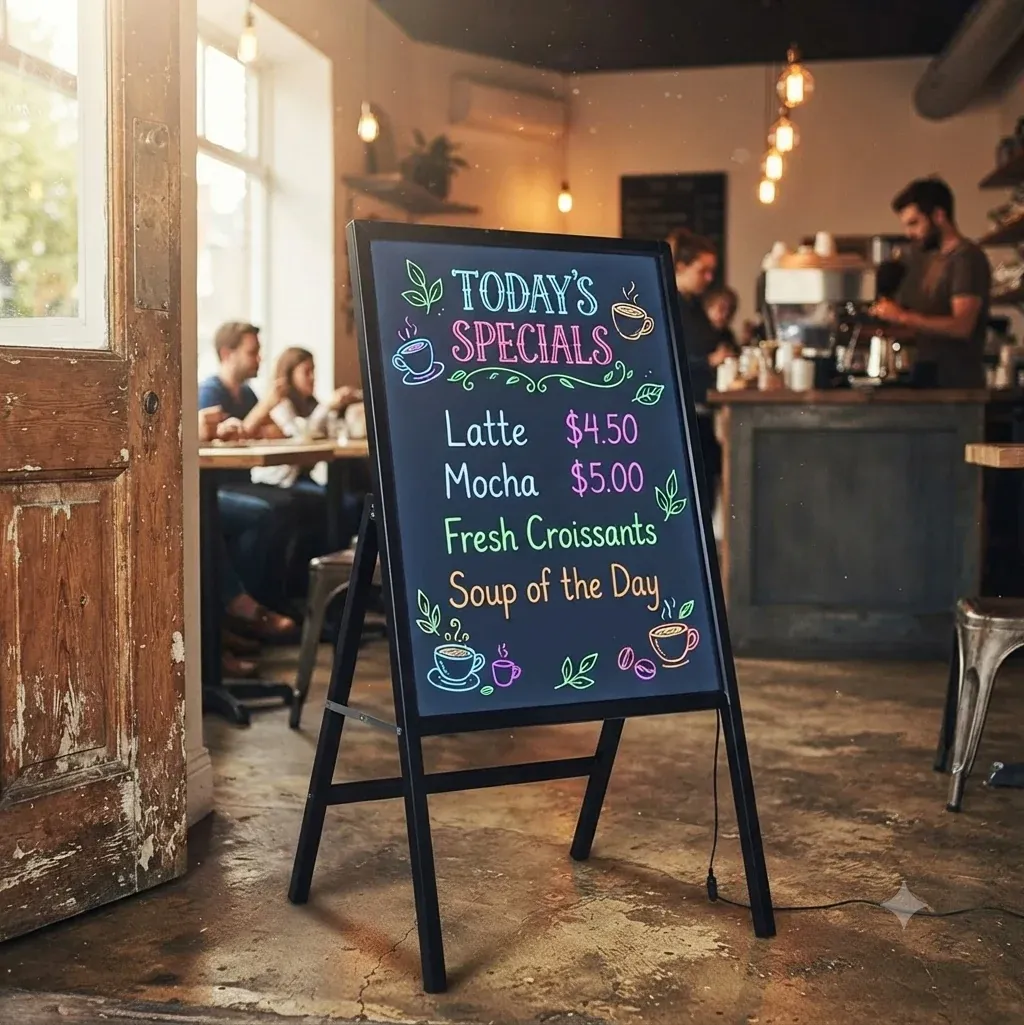 TODAY'S
SPECIALS
Latte $4.50
Mocha $5.00
Fresh Croissants
Soup of the Day